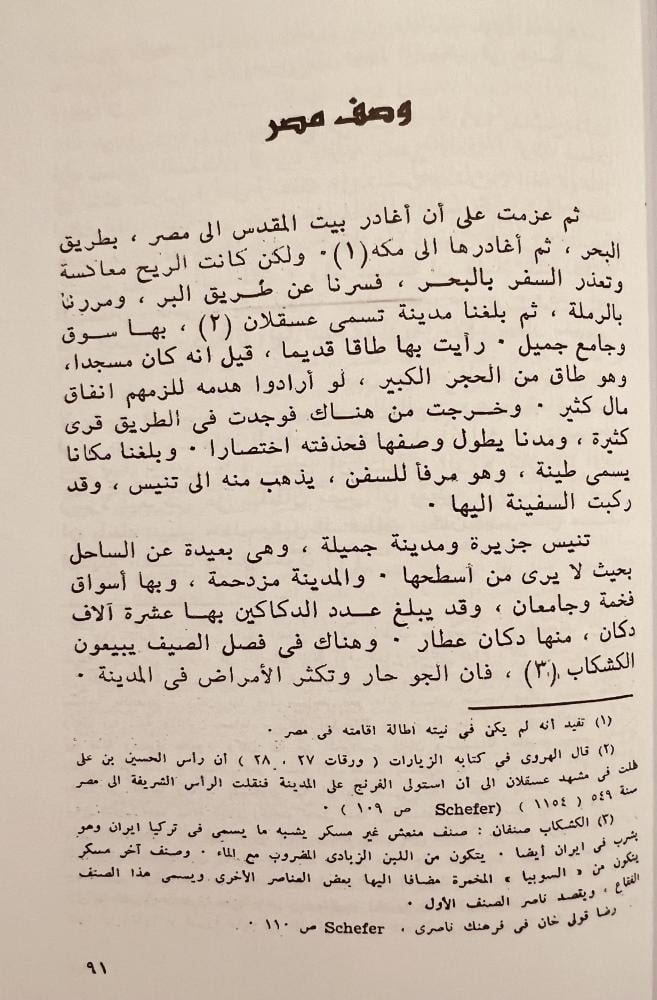 وصف مصر
ثم عزمت على أن أغادر بيت المقدس الى مصر ، بطريق
البحر ، ثم أغادرها الى مكه(١)٠ ولكن كانت الريح معاكسة
وتعذر السفر بالبحر ، فسرنا عن طريق البر ، ومررنا
بالرملة ، ثم بلغنا مدينة تسمى عسقلان (٢) ، بها سوق
وجامع جميل ٠ رأيت بها طاقا قديما ، قيل انه كان مسجدا،
وهو طاق من الحجر الكبير ، لو أرادوا هدمه للزمهم انفاق
مال كثير ٠ وخرجت من هناك فوجدت فى الطريق قرى
كثيرة ، ومدنا يطول وصفها فحذفته اختصارا ٠ وبلغنا مكانا
يسمى طينة ، وهو مرفأ للسفن ، يذهب منه الى تنيس ، وقد
ركبت السفينة اليها ٠
تنيس جزيرة ومدينة جميلة ، وهى بعيدة عن الساحل
بحيث لا يرى من أسطحها ٠ والمدينة مزدحمة ، وبها أسواق
فخمة وجامعان ، وقد يبلغ عدد الدكاكين بها عشرة آلاف
دكان ، منها دكان عطار ٠ وهناك فى فصل الصيف يبيعون
الكشكاب (٣) ، فان الجو حار وتكثر الأمراض فى المدينة ٠
(١) تفيد أنه لم يكن فى نيته اطالة اقامته فى مصر ٠
(٢) قال الهروى في كتابه الزيارات ( ورقات ٢٧ ، ٢٨ ) أن رأس الحسين بن على
ظلت فى مشهد عسقلان الى أن استولى الفرنج على المدينة فنقلت الرأس الشريفة الى مصر
سنة ٥٤٩ ( ١١٥٤ ) (Schefer ص ١٠٩ ) ٠
(٣) الكشكاب صنفان : صنف منعش غير مسكر يشبه ما يسمى فى تركيا ايران وهو
يشرب فى ايران أيضا ٠ يتكون من اللبن الزبادى المضروب مع الماء ٠ وصنف آخر مسكر
يتكون من « السوبيا » المخمرة مضافا اليها بعض العناصر الأخرى ويسمى هذا الصنف
الفقاع ، ويقصد ناصر الصنف الأول ٠
رضا قولى خان فى فرهنك ناصرى ، Schefer ص ١١٠ ٠
٩١